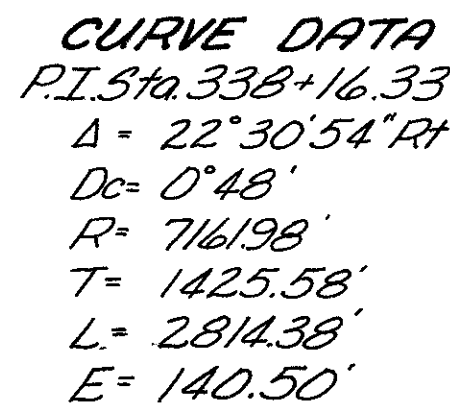 CURVE DATA
P.I.Sta.338+16.33
Δ = 22°30'54" Rt
Dc= 0°48'
R= 7161.98'
T= 1425.58'
L= 2814.38'
E= 140.50'